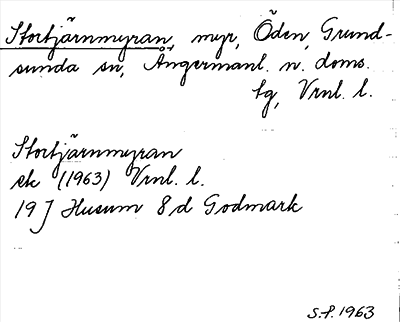 Stortjärnmyran, myr, Öden, Grund-
sunda sn, Ångermanl. n. doms.
lg, Vrnl. l.
Stortjärnmyran
ek (1963) Vrnl. l.
19 J Husum 8 d Godmark
S.P. 1963